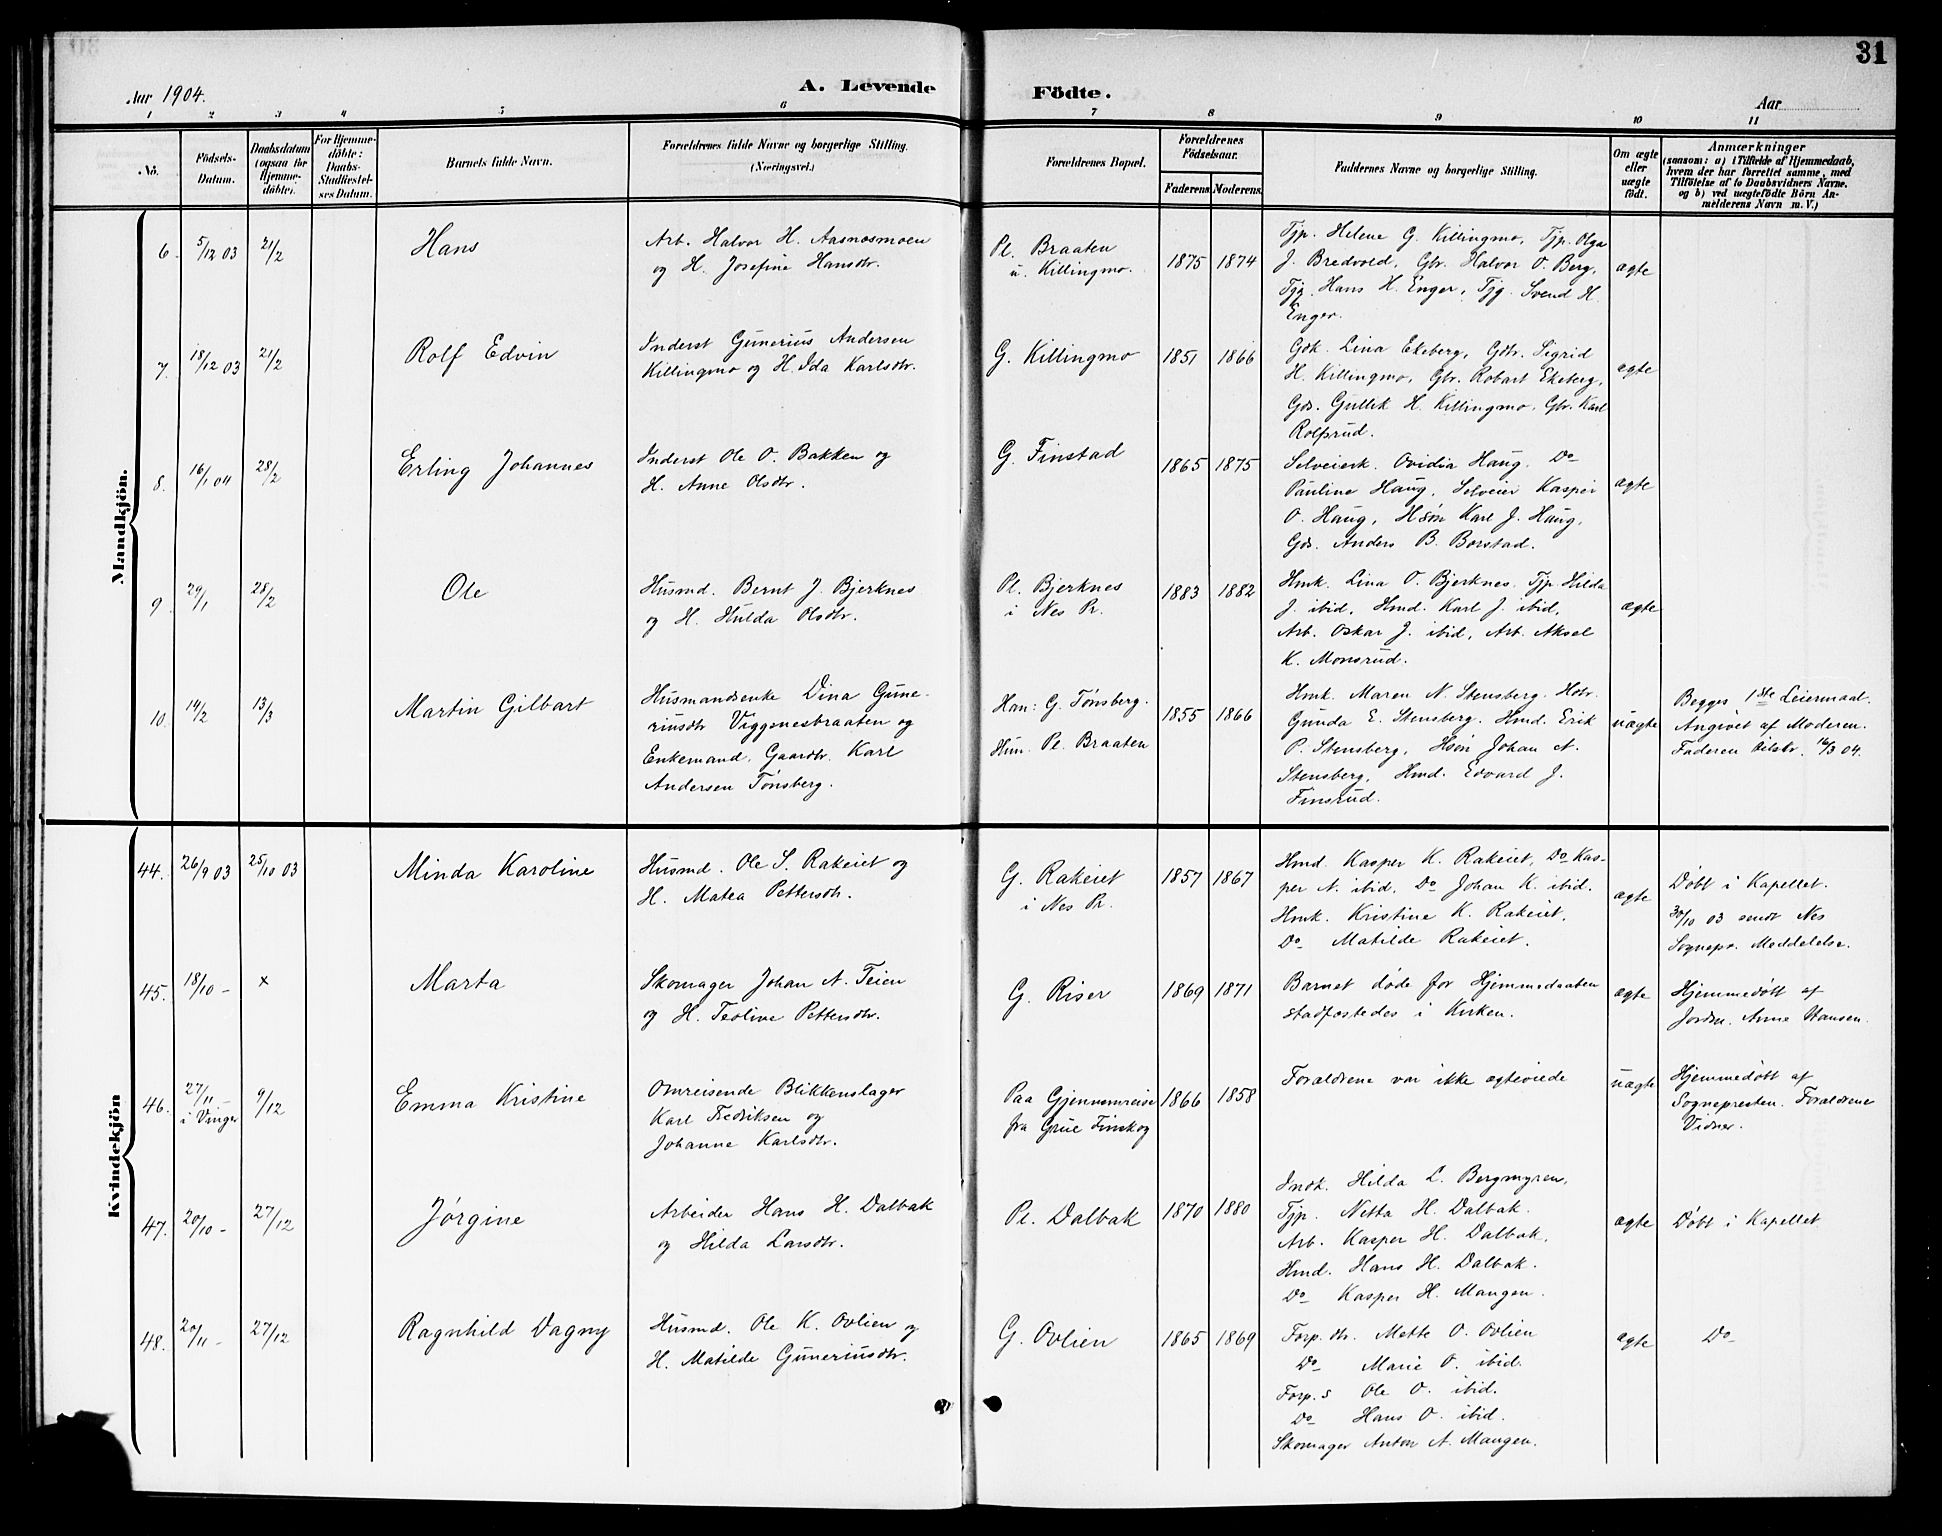 31
Aar 1904.
A. Levende Födte.
Aar
1 2 3 4 5 6 7 8 9 10 11
No.
Födsels-Datum.
Daabsdatum (ogsaa for Hjemme-döbte).
For Hjemme-döbte: Daabs-Stadfæstel-ses Datum.
Barnets fulde Navn.
Forældrenes fulde Navne og borgerlige Stilling.
(Næringsvei.)
Forældrenes Bopæl.
Forældrenes Födselsaar.
Faderens
Moderens
Faddernes Navne og borgerlige Stilling.
Om ægte eller uægte födt.
Anmærkninger
(saasom: a) i Tilfælde af Hjemmedaab,
hvem der har forrettet samme, med
Tilföielse af to Daabsvidners Navne.
og b) ved uægtefödte Börn An-
melderens Navn m. V.)
Mandkjön.
6. 5/12 03 21/2
Hans
Arb. Halvor H. Aasnæsmoen
og H. Josefine Hansdtr.
Pl. Braaten
u. Killingmo.
1875 1874
Tjp. Helene G. Killingmo, Tjp. Olga
J. Bredvold, Gbr. Halvor O. Berg,
Tjg. Hans H. Enger, Tjg. Svend H.
Enger.
ægte
7. 18/12 03 21/2
Rolf Edvin
Inderst Gunerius Andersen
Killingmo og H. Ida Karlsdtr.
G. Killingmo
1851 1866
Gdk. Lina Ekeberg, Gdtr. Sigrid
H. Killingmo, Gbr. Robart Ekeberg,
Gds. Gullik H. Killingmo, Gbr. Karl
Rolfsrud.
ægte
8. 16/1 04 28/2
Erling Johannes
Inderst Ole O. Bakken og
H. Anne Olsdtr.
G. Finstad
1865 1875
Selveierk. Ovidia Haug. Do
Pauline Haug, Selveier Kasper
O. Haug, Hsøn Karl J. Haug,
Gds. Anders B. Borstad.
ægte
9. 29/1 28/2
Ole
Husmd. Bernt J. Bjerknes
og H. Hulda Olsdtr.
Pl. Bjerknes
i Nes Pr.
1883 1882
Hmk. Lina O. Bjerknes. Tjp. Hilda
J. ibid, Hmd. Karl J. ibid,
Arb. Oskar J. ibid, Arb. Aksel
K. Monsrud.
ægte
10. 14/2 13/3
Martin Gilbart
Husmandsenke Dina Gune-
riusdtr Viggenesbraaten og
Enkemand, Gaardbr. Karl
Andersen Tønsberg.
Han: G. Tønsberg.
Hun Pl. Braaten
1855 1866
Hmk. Maren N. Stensberg. Hdtr.
Gunda E. Stensberg. Hmd. Erik
P. Stensberg, Hsøn Johan N.
Stensberg, Hmd. Edvard J.
Finsrud.
uægte
Begges 1ste Leiermaal.
Angivet af Moderen.
Faderen Bilabr. 16/3 04.
Kvindekjön
44. 26/9 03 25/10 03
Minda Karoline
Husmd. Ole S. Rakeiet og
H. Matea Pettersdtr.
G. Rakeiet
i Nes Pr.
1857 1867
Hmd. Kasper K. Rakeiet, Do Kas-
per N. ibid, Do Johan K. ibid.
Hmk. Kristine K. Rakeiet,
Do Matilde Rakeiet.
ægte
Døbt i Kapellet.
30/10 03 sendt Nes
Sognepr. Meddelelse.
45. 18/10 - x
Marta
Skomager Johan A. Teien
og H. Teoline Pettersdtr.
G. Riser
1869 1871
Barnet døde før Hjemmedaaben
stadfæstedes i Kirken.
ægte
Hjemmedøbt af
Jordm. Anne Hansen.
46. 27/11 - i Vinger 9/12
Emma Kristine
Omreisende Blikkenslager
Karl Fredriksen og
Johanne Karlsdtr.
Paa Gjennemreise
fra Grue Finskog
1866 1858
Forældrene var ikke ægteviede
uægte
Hjemmedøbt af
Sognepresten. Forældrene
Vidner.
47. 20/10 - 27/12
Jørgine
Arbeider Hans H. Dalbak
og Hilda Larsdtr.
Pl. Dalbak
1870 1880
Indk. Hilda L. Bergmyren,
Tjp. Netta H. Dalbak.
Arb. Kasper H. Dalbak,
Hmd. Hans H. Dalbak.
Do Kasper H. Mangen.
ægte
Døbt i Kapellet
48. 20/11 - 27/12
Ragnhild Dagny
Husmd. Ole K. Ovlien og
H. Matilde Guneriusdtr.
G. Ovlien
1865 1869
Forp. dtr. Mette O. Ovlien
Do Marie O. ibid.
Forp. s Ole O. ibid.
Do Hans O. ibid.
Skomager Anton A. Mangen.
ægte
Do